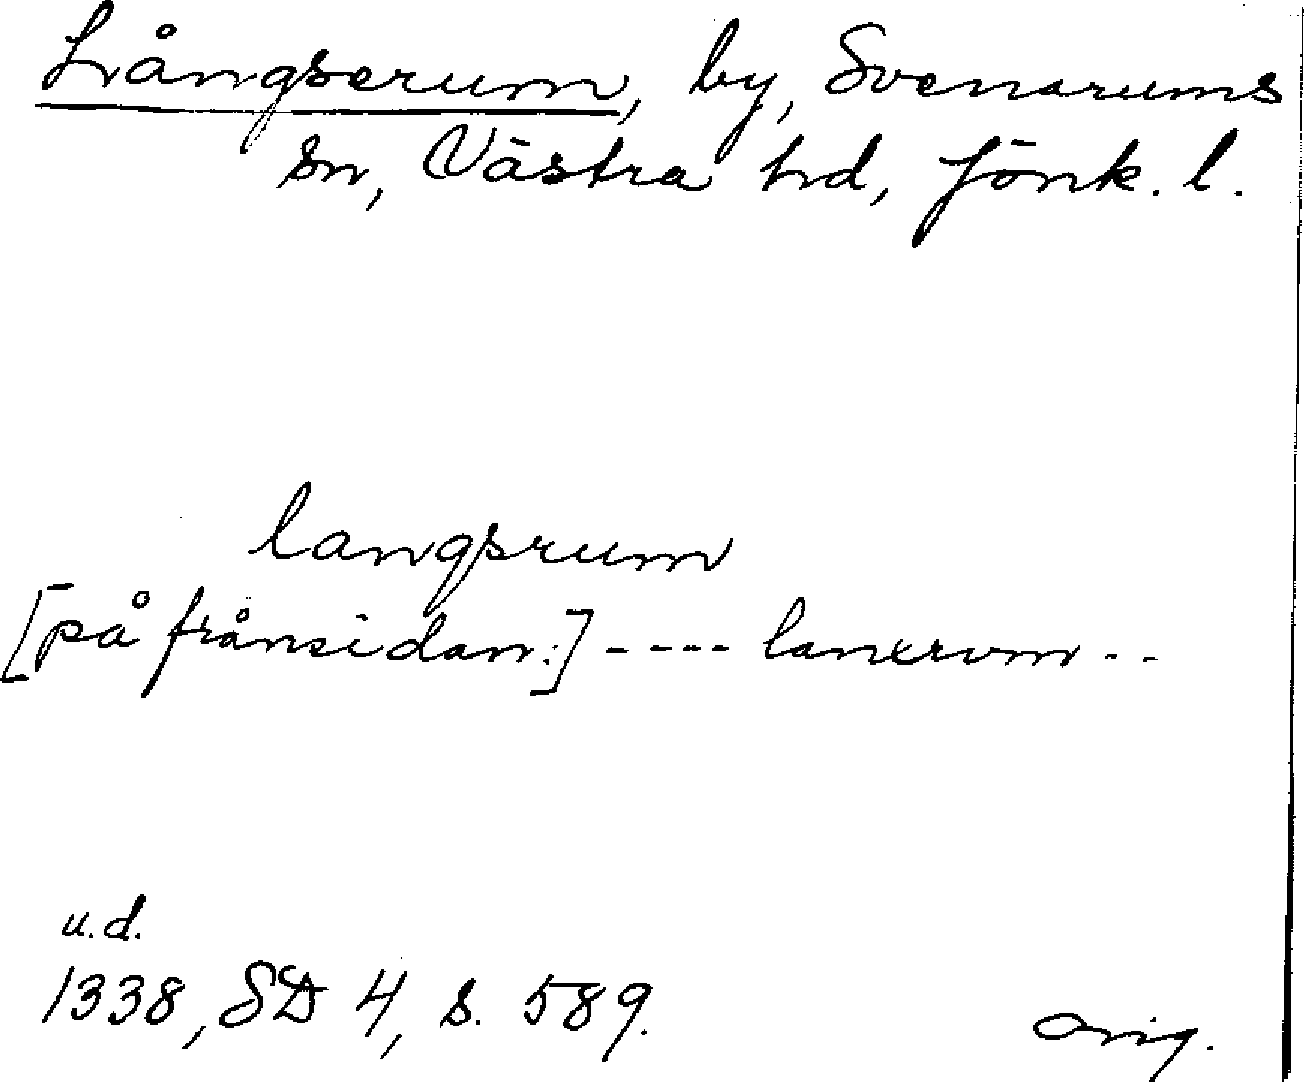 Långserum, by, Svenarums
sn, Västra hd, Jönk. l.
langsrum
[på frånsidan:] ---- lanxrvm --
u.d.
1338, SD 4, s. 589.
Orig.